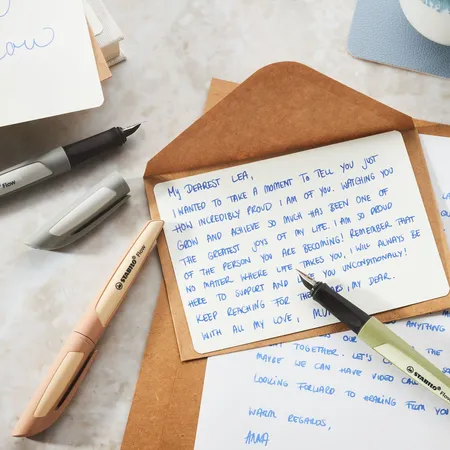 Flow
MY DEAREST LEA,
I WANTED TO TAKE A MOMENT TO TELL YOU JUST
HOW INCREDIBLY PROUD I AM OF YOU. WATCHING YOU
GROW AND ACHIEVE SO MUCH HAS BEEN ONE OF
THE GREATEST JOYS OF MY LIFE. I AM SO PROUD
OF THE PERSON YOU ARE BECOMING! REMEMBER THAT
NO MATTER WHERE LIFE TAKES YOU, I WILL ALWAYS BE
HERE TO SUPPORT AND YOU UNCONDITIONALLY!
KEEP REACHING FOR THE MY DEAR.
WITH ALL MY LOVE,
STABILO Flow
STABILO Flow
ANYTHING
OUR THE
TOGETHER. LET'S
MAYBE WE CAN HAVE VIDEO CALL
LOOKING FORWARD TO HEARING FROM YOU
WARM REGARDS,
ANNA